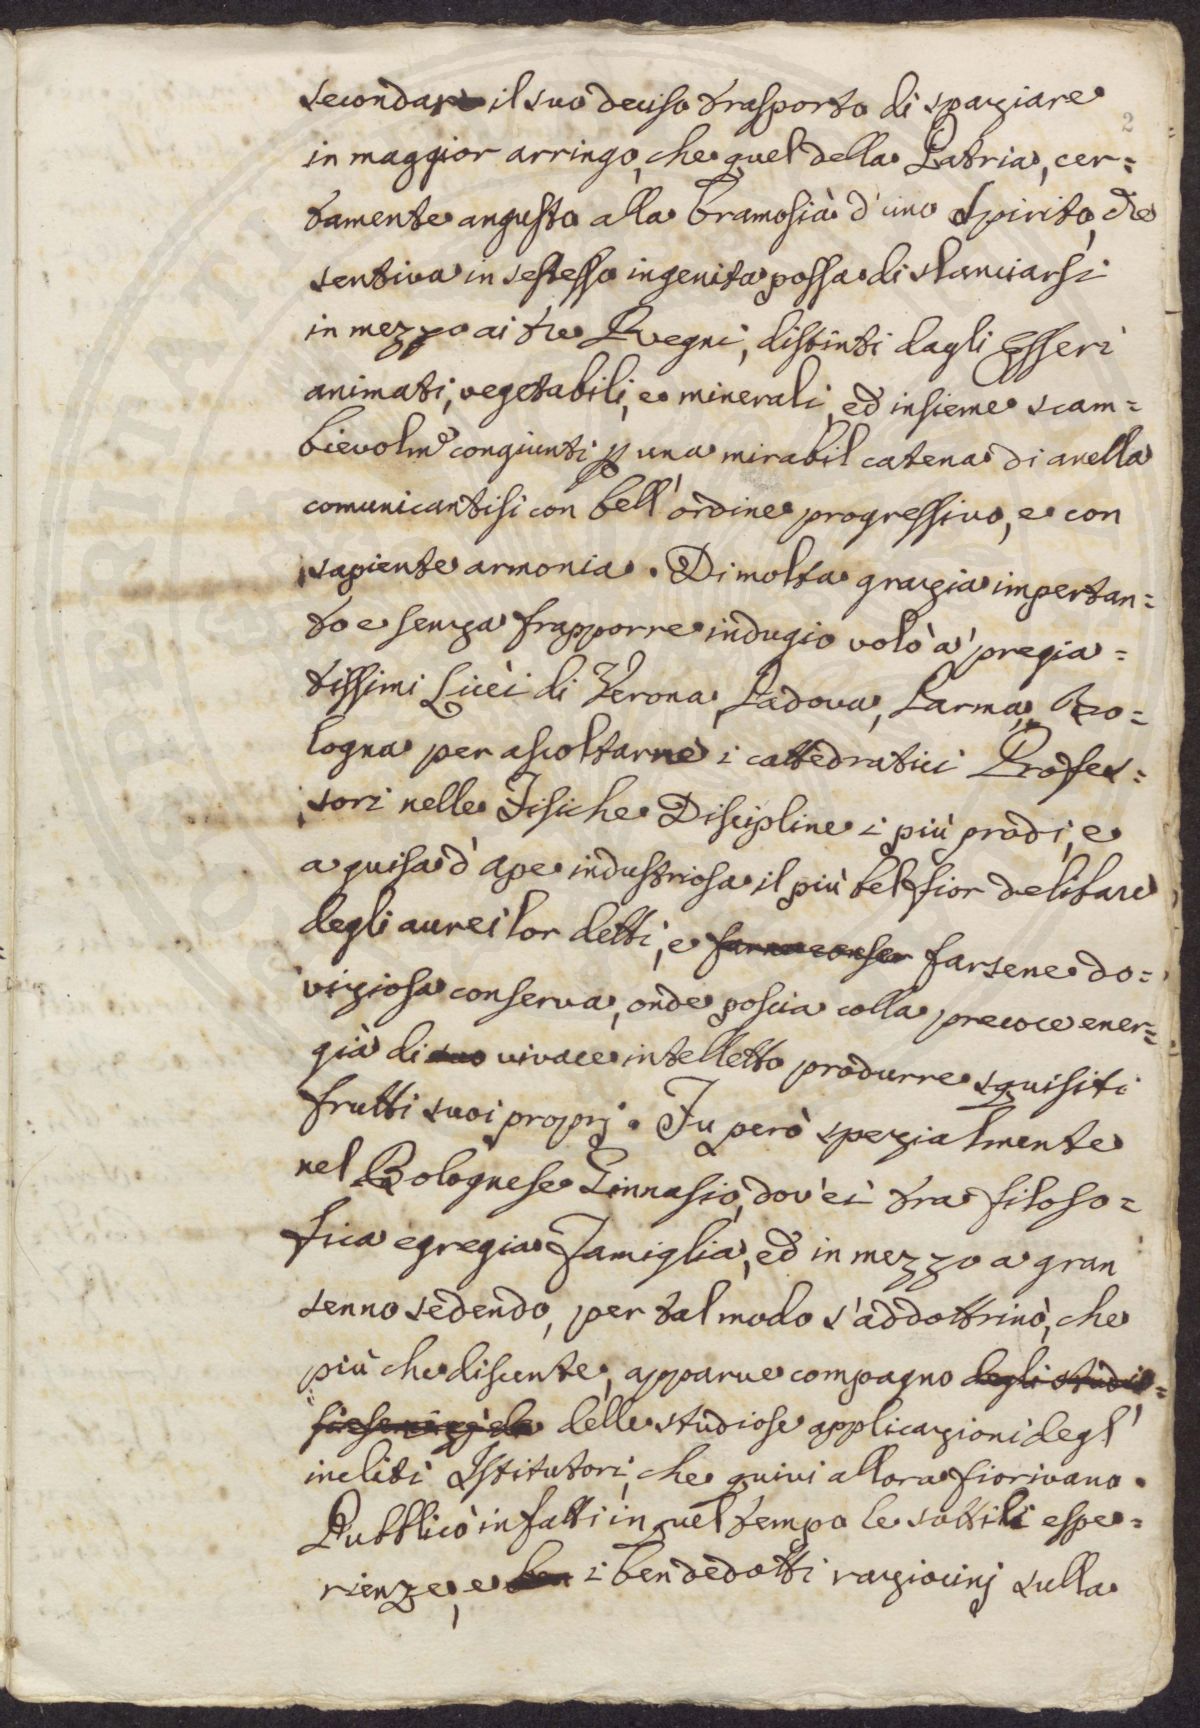 2
secondare il suo deciso trasporto di spaziare
in maggior arringo, che quel della Patria, cer=
tamente angusto alla bramosia d'uno Spirito, che
sentiva in sestesso ingenita possa di slanciarsi
in mezzo ai tre Regni, distinti dagli Esseri
animati, vegetabili, e minerali, ed insieme scam=
bievolm.e congiunti p una mirabil catena di anella
comunicantisi con bell'ordine progressivo, e con
sapiente armonia. Di molta grazia impertan=
to e senza frapporre indugio volò a' pregia=
tissimi Licèi di Verona, Padova, Parma, Bo=
logna per ascoltarne i cattedratici Profes=
sori nelle Fisiche Discipline i più prodi, e
a guisa d'ape industriosa il più bel fior delibare
degli aurei lor detti, e farne conser farsene do=
viziosa conserva, onde poscia colla precoce ener=
gia di suo vivace intelletto produrre squisiti
frutti suoi proprj. Fu però spezialmente
nel Bolognese Ginnasio, dov'ei tra filoso=
fica egregia Famiglia, ed in mezzo a gran
senno sedendo, per tal modo s'addottrinò, che
più che discente, apparve compagno degli studi
delle studiose applicazioni degl'
incliti Istitutori, che quivi allora fiorivano.
Pubblicò infatti in quel tempo le sottili espe=
rienze, e ben i ben dedotti raziocinj sulla